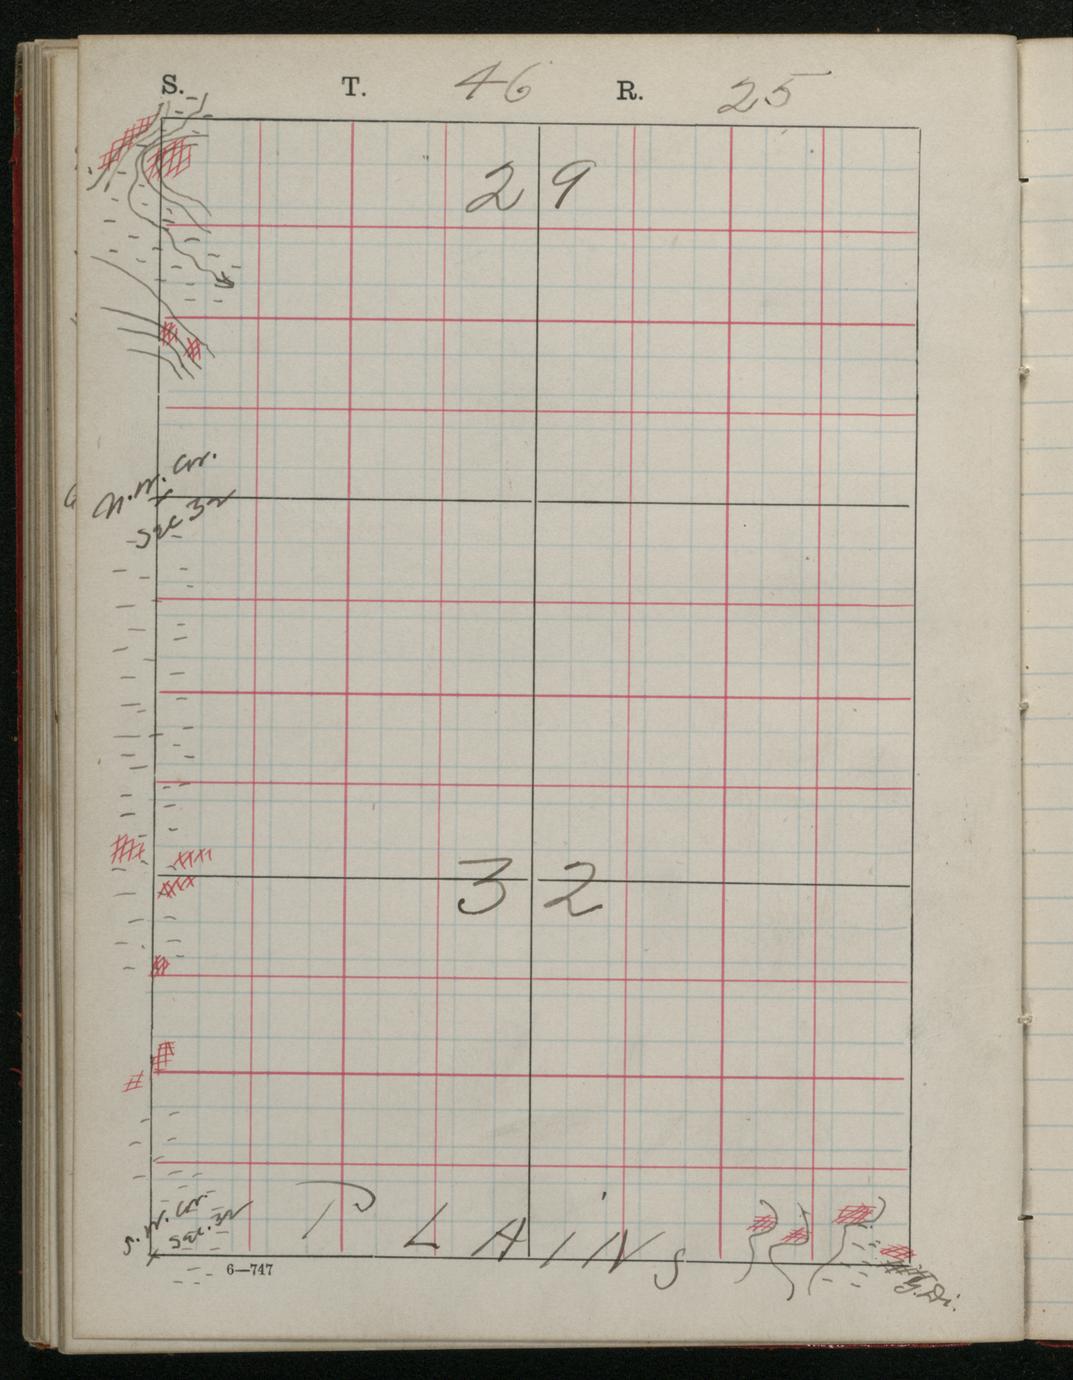 S. T. 46 R. 25
29
N.W. Cor.
Sec 32
32
S.W. Cor.
Sec. 32
PLAINS
6—747